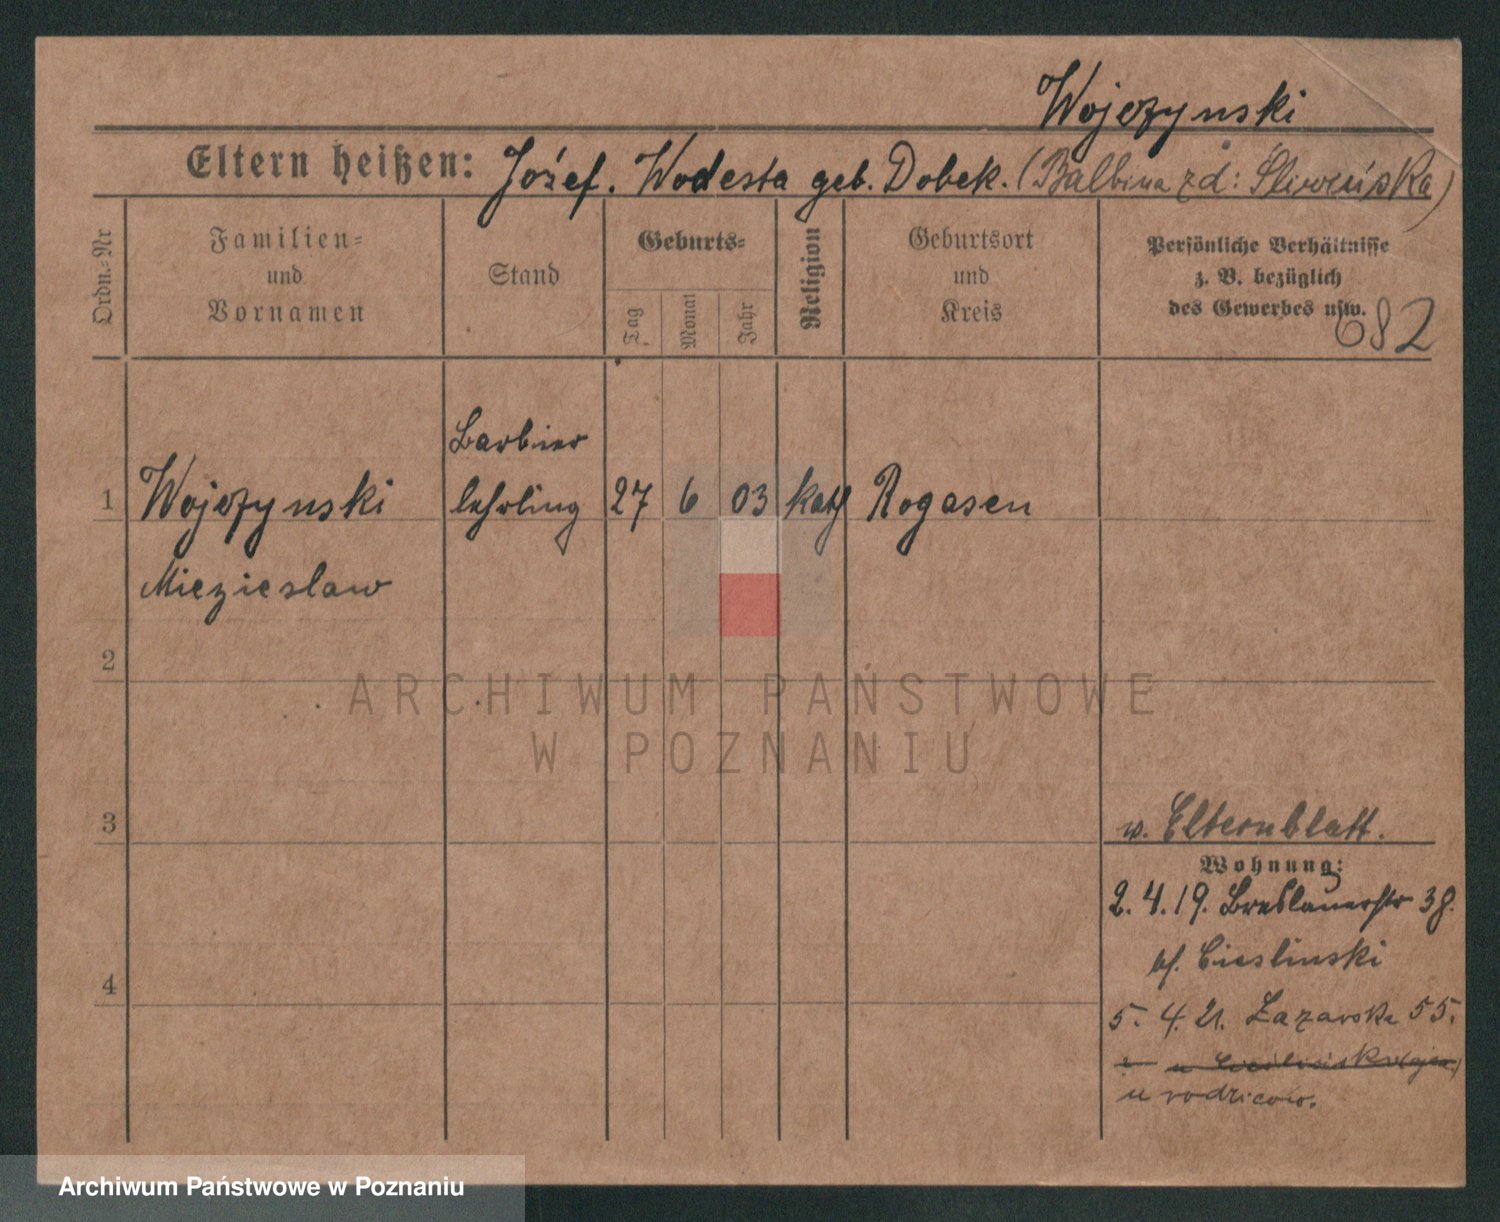 Wojczynski
Eltern heißen: Józef. Modesta geb. Dobek. (Balbina zd: Śliwińska)
Ordn.-Nr
Familien-
und
Vornamen
Stand
Geburts-
Tag
Monat
Jahr
Religion
Geburtsort
und
Kreis
Persönliche Verhältnisse
z. B. bezüglich
des Gewerbes usw.
682
Barbier
1 Wojczynski lehrling 27 6 03 kath Rogasen
Miezieslaw
2
ARCHIWUM PAŃSTWOWE
W POZNANIU
3
w. Elternblatt.
Wohnung:
2.4.19. Breslauerstr 38.
bf. Cieslinski
4
5. 4. 21. Łazarska 55.
u rodziców.
Archiwum Państwowe w Poznaniu